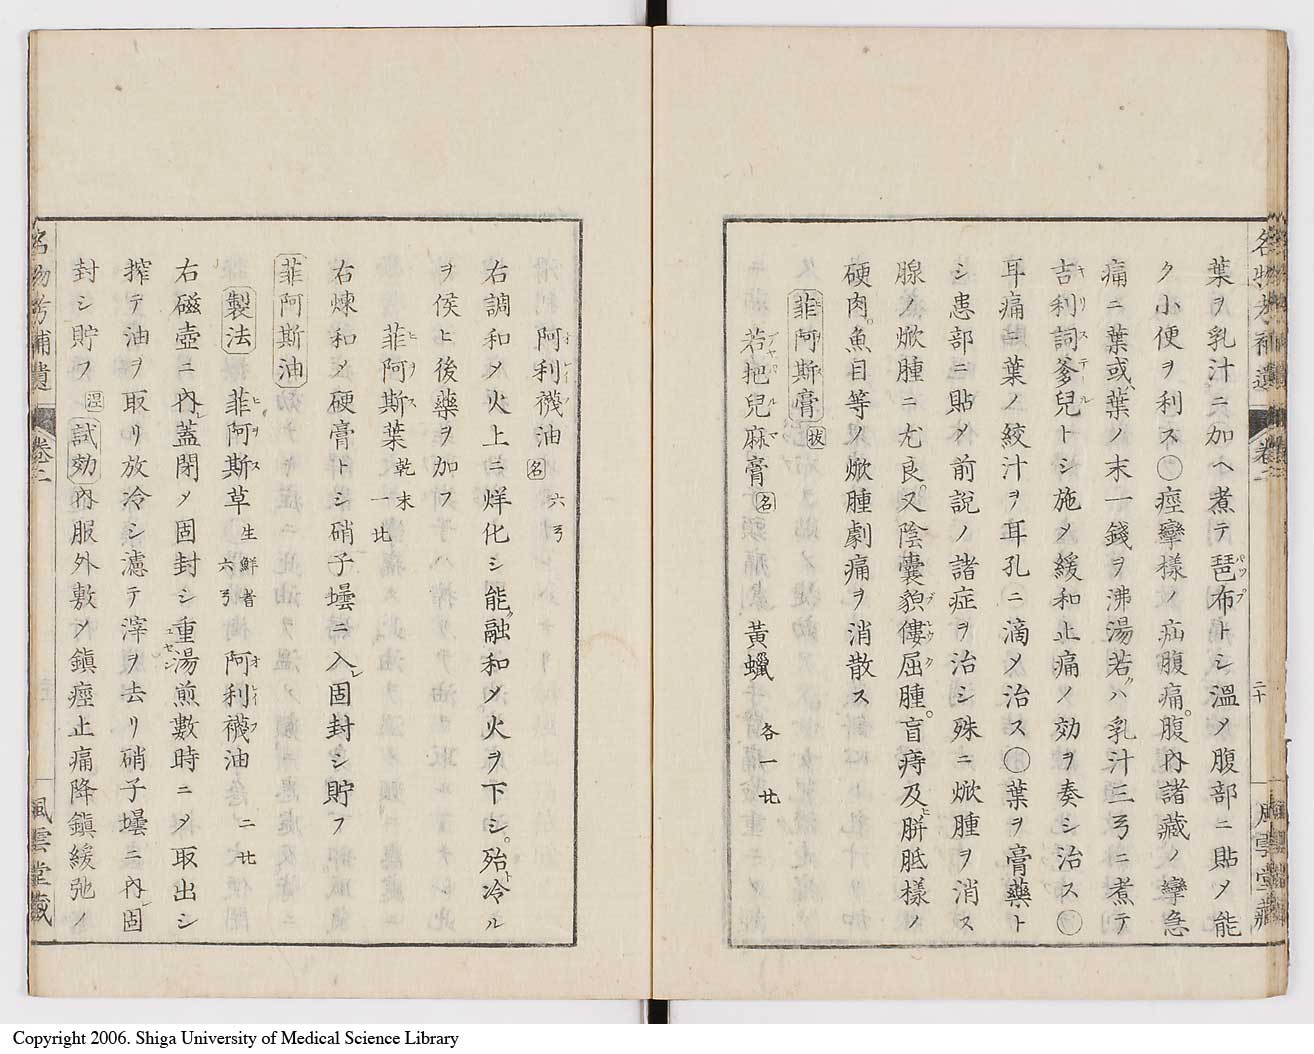 名物考補遺 卷二 二十 風雲堂藏
葉ヲ乳汁ニ加ヘ煮テ琶布トシ溫メ腹部ニ貼メ能
ク小便ヲ利ス〇痙攣樣ノ疝腹痛。腹內諸藏ノ攣急
痛ニ葉或ハ葉ノ末一錢ヲ沸湯若クハ乳汁三弓ニ煮テ
吉利詞爹兒トシ施メ緩和止痛ノ効ヲ奏シ治ス〇
耳痛ニ葉ノ絞汁ヲ耳孔ニ滴メ治ス〇葉ヲ膏藥ト
シ患部ニ貼メ前說ノ諸症ヲ治シ殊ニ焮腫ヲ消ス
腺ノ焮腫ニ尤良。又陰囊貌僂屈腫。盲痔及ヒ胼胝樣ノ
硬肉。魚目等ノ焮腫劇痛ヲ消散ス
菲阿斯膏 拔
若把兒麻膏 名 黃蠟 各一𠦃
阿利襪油 名 六弓
右調和メ火上ニ烊化シ能ク融和メ火ヲ下シ。殆ト冷ル
ヲ俟ヒ後藥ヲ加フ
菲阿斯葉 乾末 一𠦃
右煉和メ硬膏トシ硝子壜ニ入レ固封シ貯フ
菲阿斯油
製法 菲阿斯草 生鮮者 六弓 阿利襪油 二𠦃
右磁壺ニ內レ蓋閉メ固封シ重湯煎數時ニメ取出シ
搾テ油ヲ取リ放冷シ濾テ滓ヲ去リ硝子壜ニ內レ固
封シ貯フ 溫 試効 內服外敷メ鎭痙止痛降鎭緩弛ノ
名物考補遺 卷二 風雲堂藏
Copyright 2006. Shiga University of Medical Science Library